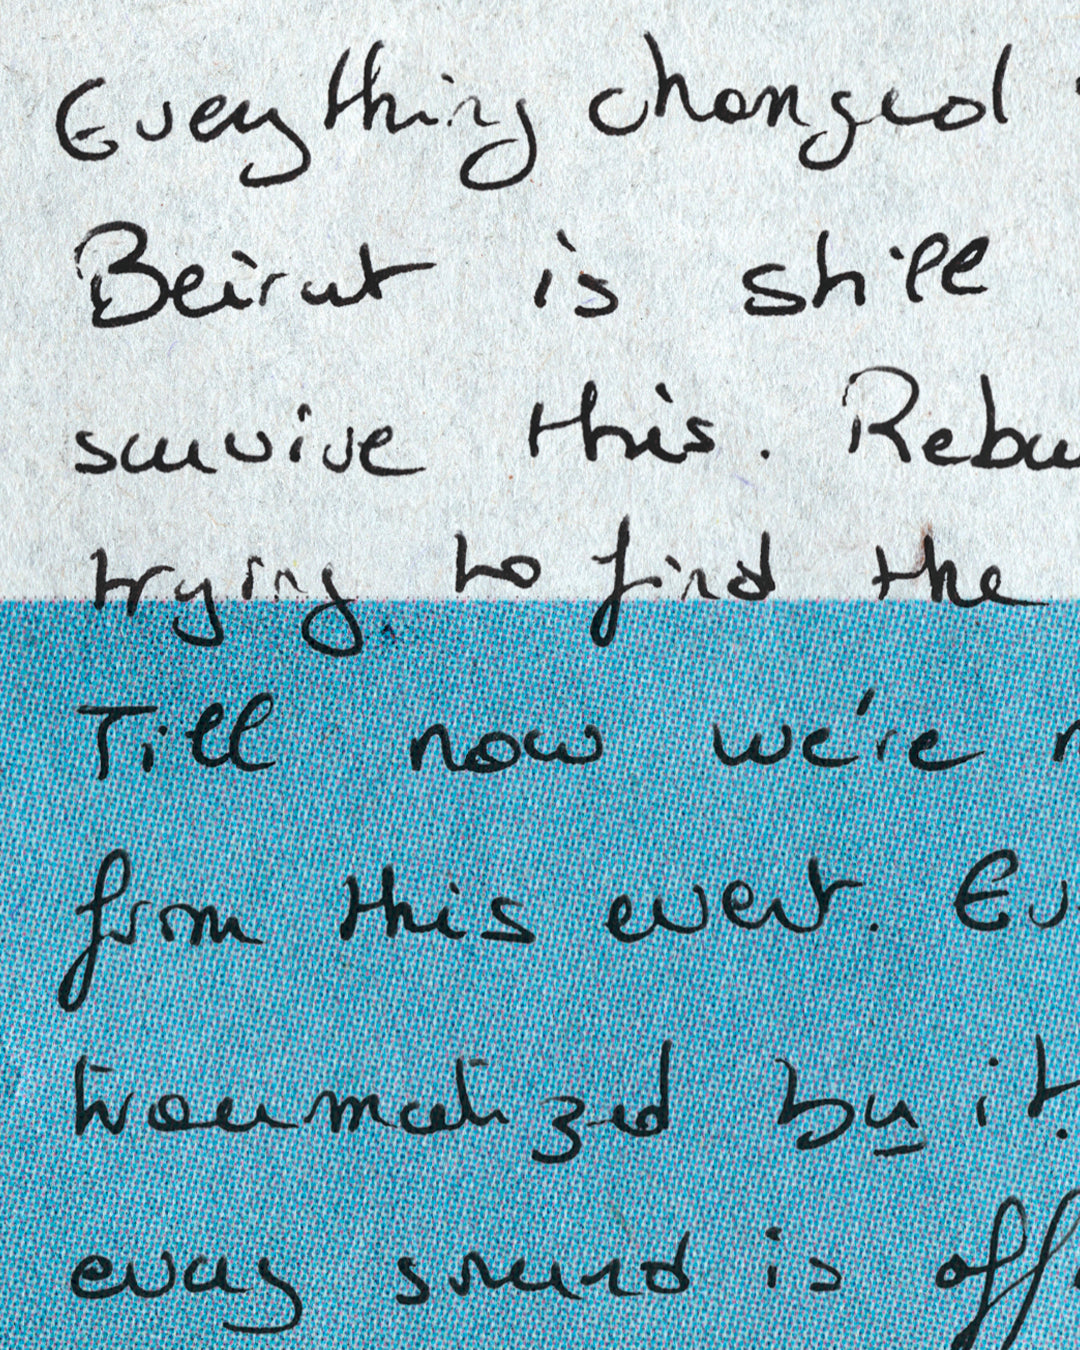 Everything changed
Beirut is still
survive this. Rebu
trying to find the
Till now we're
from this event. Ev
traumatized by it.
every sound is aff